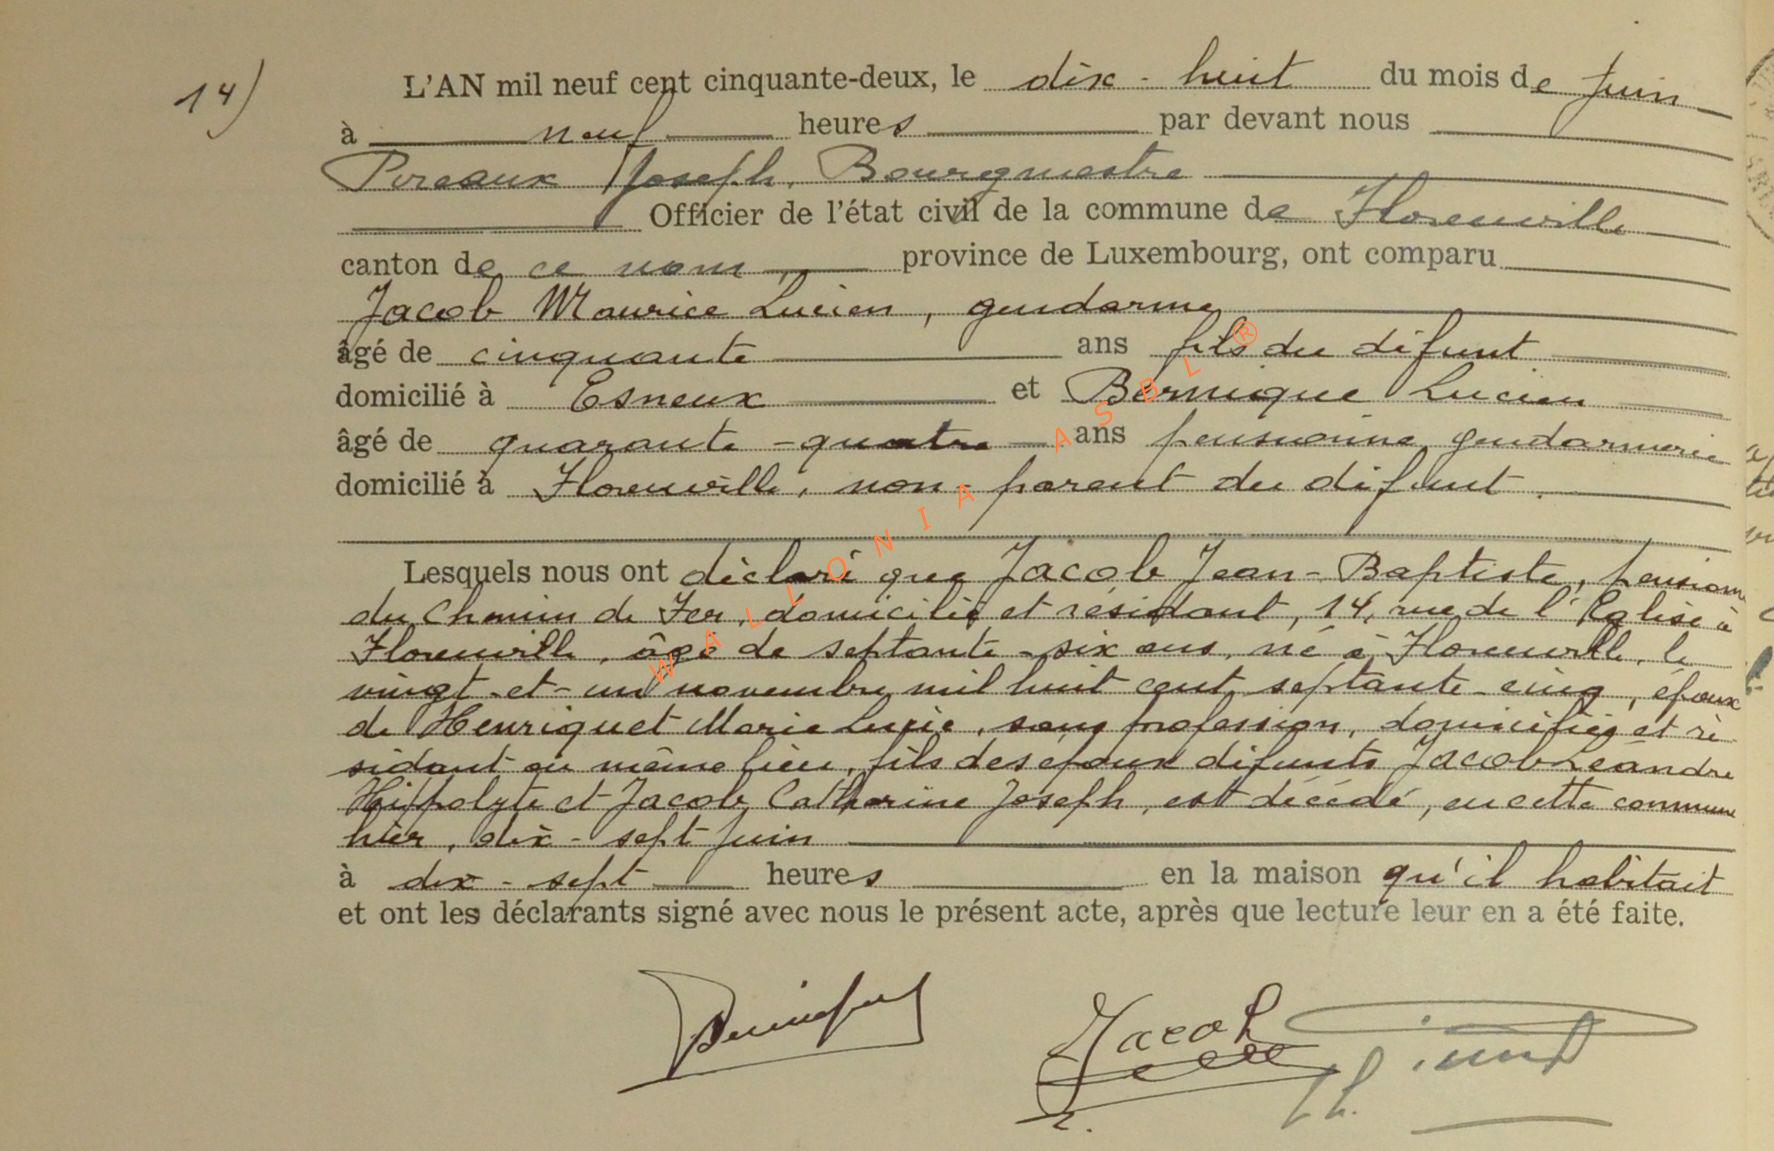 14)
L'AN mil neuf cent cinquante-deux, le dix-huit du mois de Juin
à neuf heures par devant nous
Pireaux Joseph, Bourgmestre
Officier de l'état civil de la commune de Florenville
canton de ce nom province de Luxembourg, ont comparu
Jacob Maurice Lucien, gendarme
âgé de cinquante ans fils du défunt
domicilié à Esneux et Bernique Lucien
âgé de quarante-quatre ans pensionné gendarmerie
domicilié à Florenville, non-parent du défunt.
Lesquels nous ont déclaré que Jacob Jean-Baptiste, pensionné
du Chemin de Fer, domicilié et résidant, 14, rue de l'Eglise à
Florenville, âgé de septante-six ans, né à Florenville, le
vingt-et-un novembre mil huit cent septante-cinq, époux
de Henriquet Marie Lucie, sans profession, domiciliée et ré-
sidant au même lieu, fils des époux défunts Jacob Léandre
Hippolyte et Jacob Catherine Joseph, est décédé, en cette commune
hier, dix-sept juin
à dix-sept heures en la maison qu'il habitait
et ont les déclarants signé avec nous le présent acte, après que lecture leur en a été faite.
Jacob
WALLONIA ASBL ®